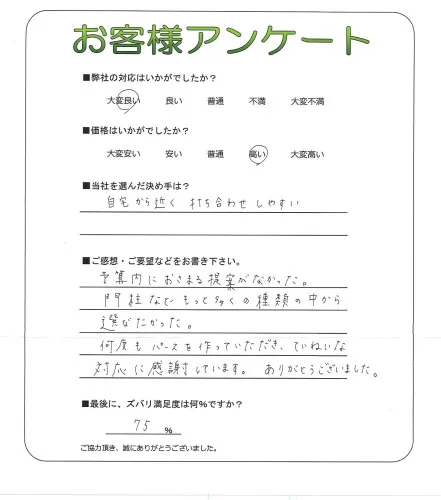 お客様アンケート
■弊社の対応はいかがでしたか？
大変良い 良い 普通 不満 大変不満
■価格はいかがでしたか？
大変安い 安い 普通 高い 大変高い
■当社を選んだ決め手は？
自宅から近く 打ち合わせしやすい
■ご感想・ご要望などをお書き下さい。
予算内におさまる提案がなかった。
門柱など もっと多くの種類の中から
選びたかった。
何度もパースを作っていただき、ていねいな
対応に感謝しています。 ありがとうございました。
■最後に、ズバリ満足度は何%ですか？
75 %
ご協力頂き、誠にありがとうございました。